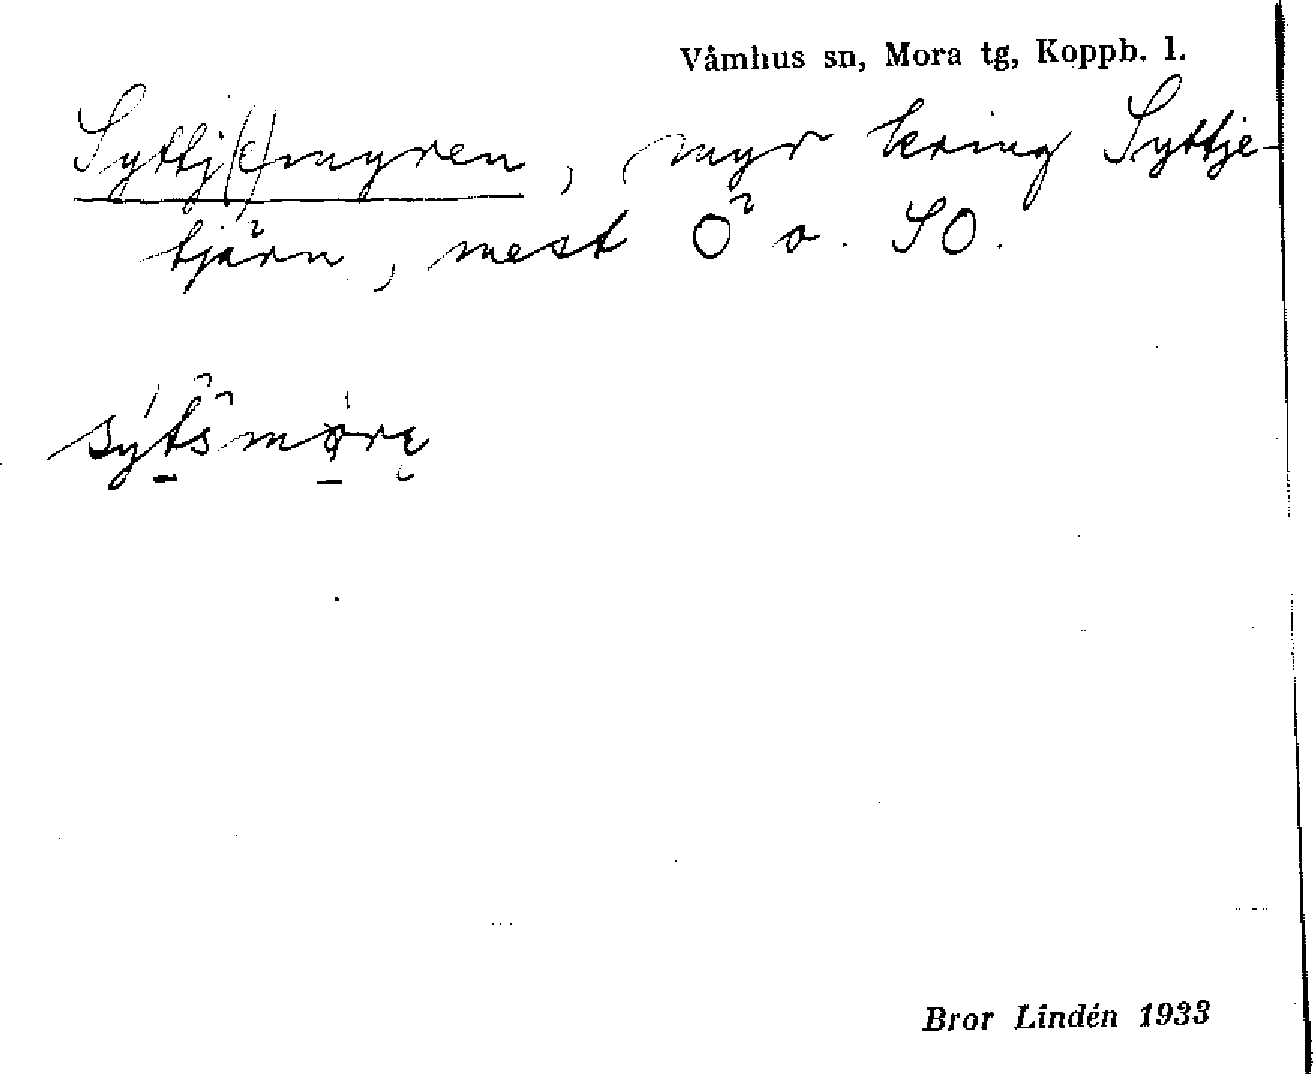 Våmhus sn, Mora tg, Koppb. l.
Syttj(e)myren, myr kring Syttje-
tjärn, mest Ö o. SO.
Bror Lindén 1933